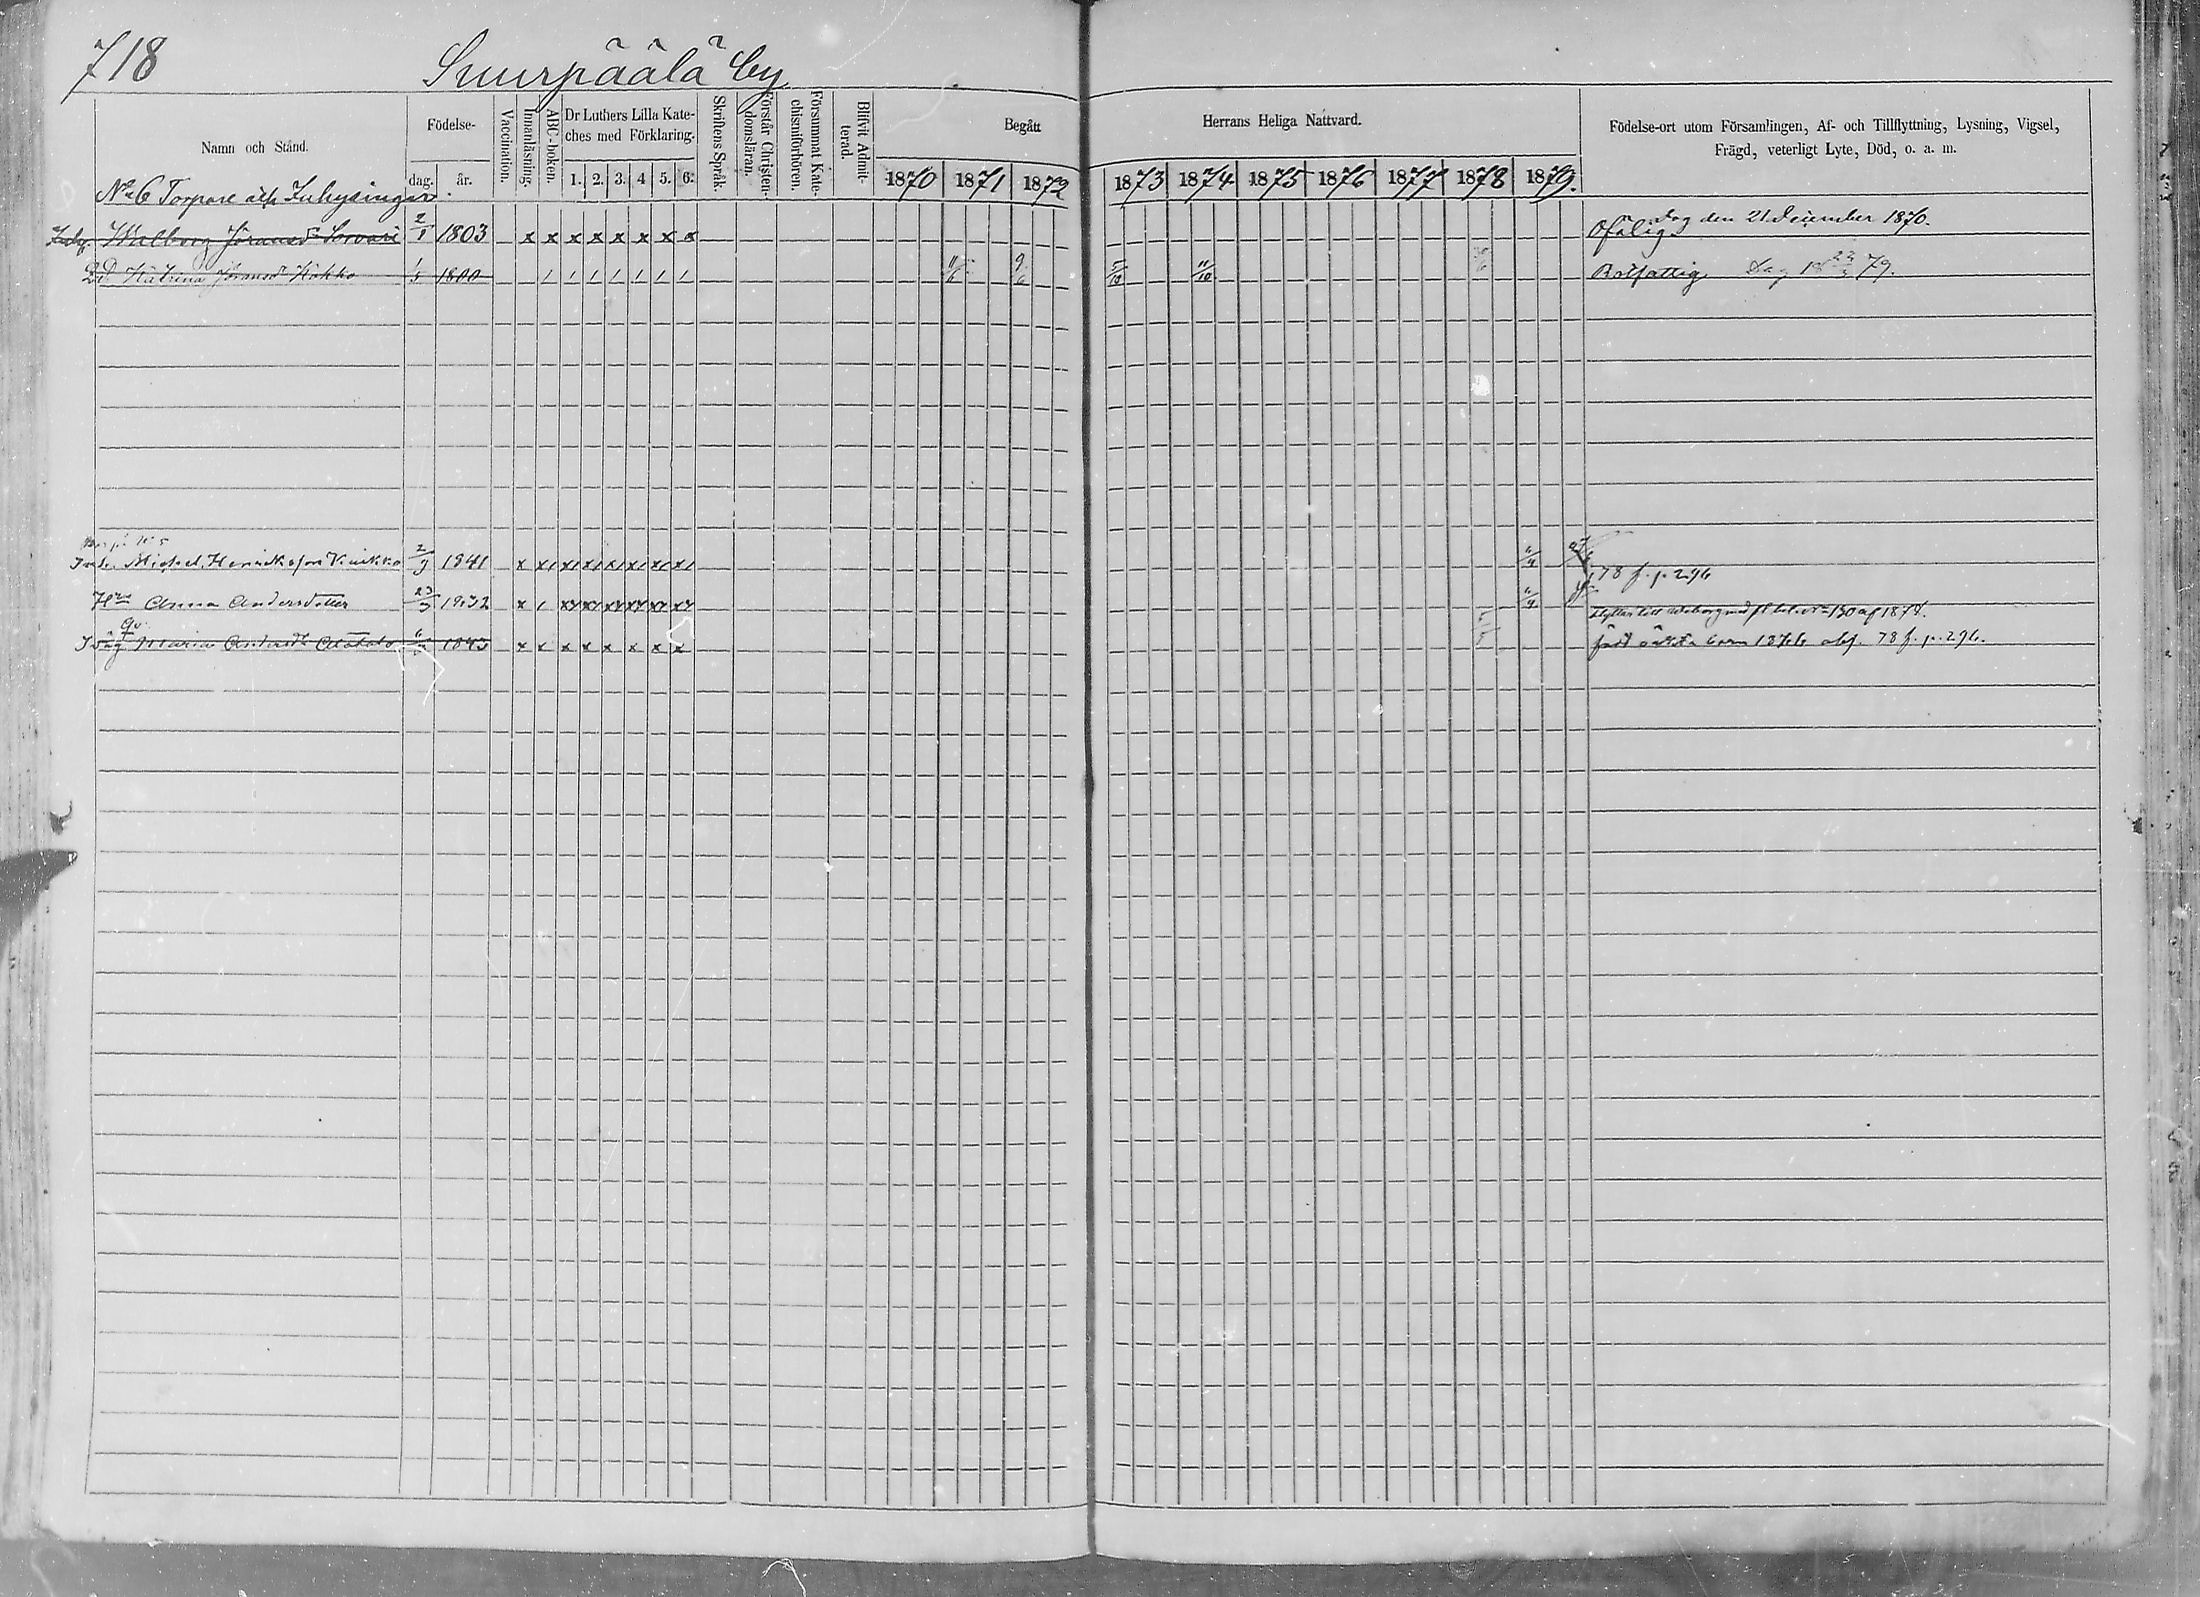 718
Suurpäälä by
Namn och Stånd.
Födelse-
dag.
år.
Vaccination.
Innanläsning.
ABC-boken.
Dr Luthers Lilla Kate-
ches med Förklaring.
1. 2. 3. 4 5. 6.
Skriftens Språk.
Förstår Christen-
domsläran.
Försummat Kate-
chismiförhören.
Blifvit Admit-
terad.
Begått
1870 1871 1872
Herrans Heliga Nattvard.
1873 1874 1875 1876 1877 1878 1879.
Födelse-ort utom Församlingen, Af- och Tillflyttning, Lysning, Vigsel,
Frägd, veterligt Lyte, Död, o. a. m.
No 6 Torpare och Inhysingar.
Inhy. Walborg Göransdr Sorvari 2/1 1803 x x x x x x x x
Dog den 21 December 1870.
Ofälig
Katrina Göransdr Kokko 1/5 1800 / / / / / / / 11/6 9/6 5/10 11/10
Rotfattig Dog 18 23/3 79.
Inh. Michel Henriksson Kuikko 2/9 1841 x x/ x/ x/ x/ x/ x/ x/
78 f. p. 296
Hru Anna Andersdotter 23/3 1832 x /
Flyttat till Wiborg No 130 af 1878.
Maria Andersdr 1843 x x x x x x x x 5/5
född oäkta barn 1876 abs. 78 f. p. 296.